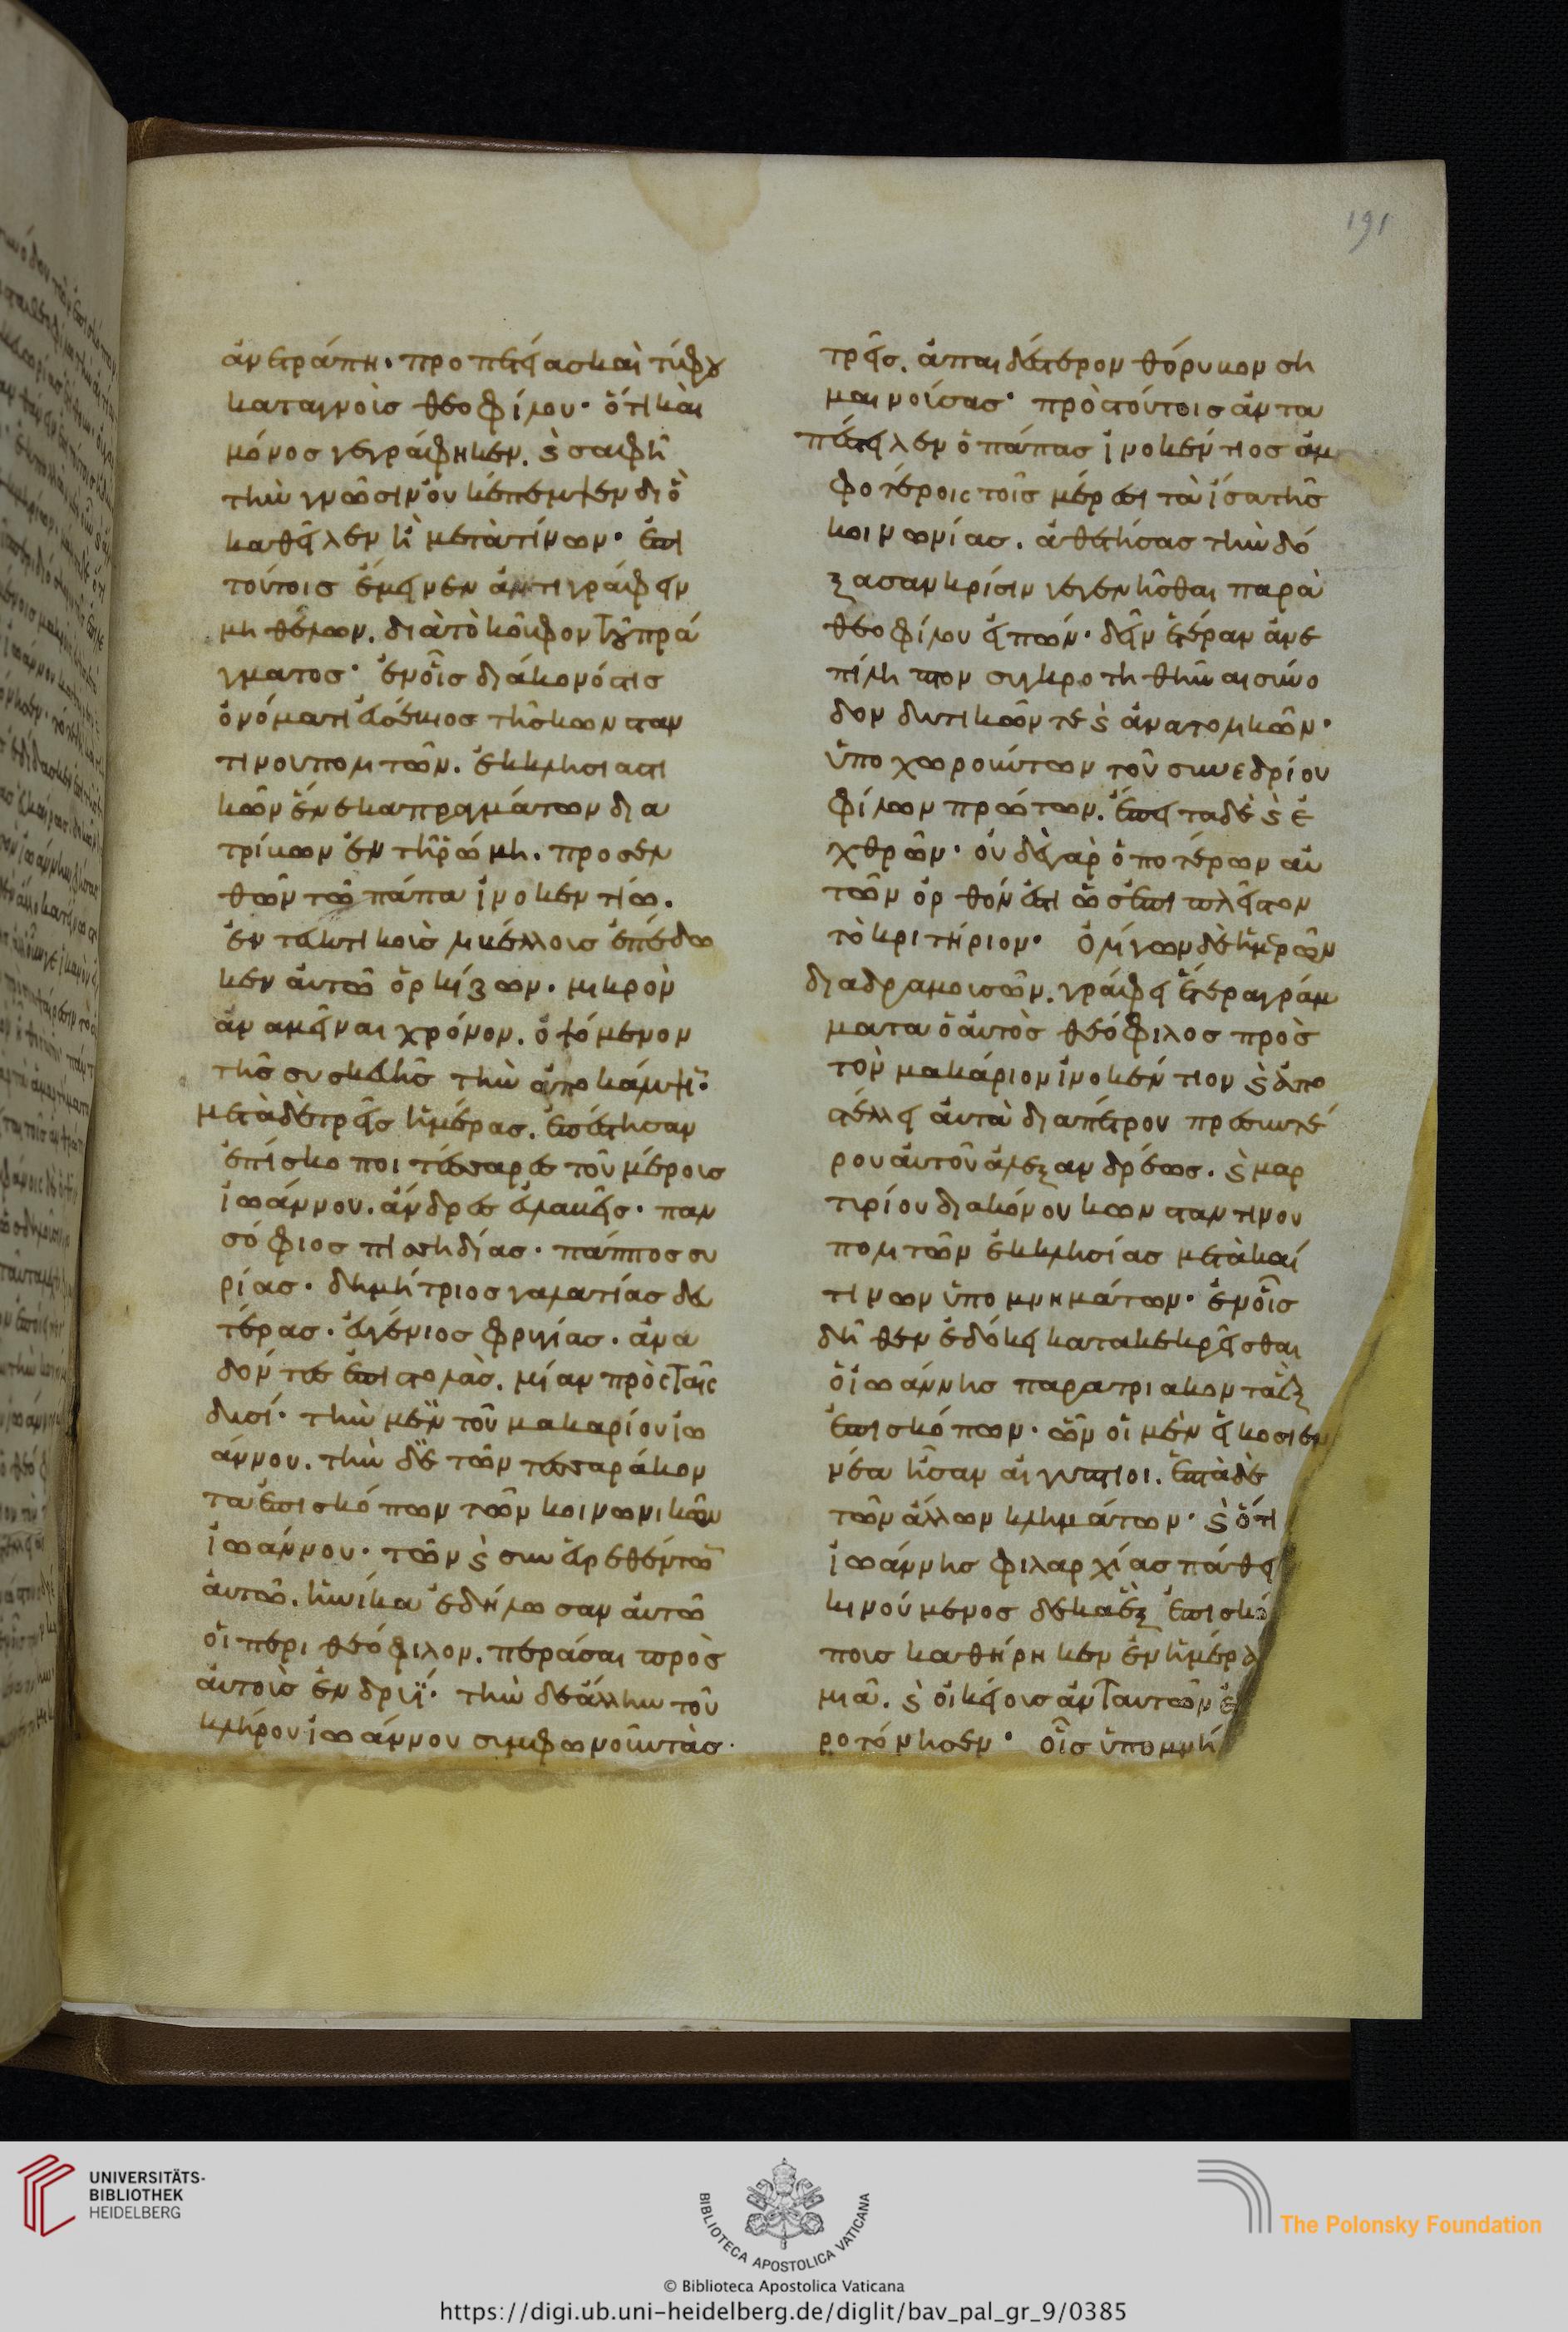 191
ἀνετράπη· προπετείας καὶ τύφου
καταγνοὺς θεοφίλου· ὅτι καὶ
μόνος γεγράφηκεν. ϗ σαφῆ
τὴν γνῶσιν οὐκ ἔπεμψεν διὸ
καθεῖλεν ἢ μετὰ τίνων· ἐπὶ
τούτοις ἔμεινεν ἀντιγράφειν
μὴ θέλων. διὰ τὸ κοῦφον τοῦ πρά
γματος· ἐν οἷς διάκονός τις
ὀνόματι εὐσέβιος τῆς κωνσταν
τινουπολιτῶν. ἐκκλησιαστι
κῶν ἕνεκα πραγμάτων δια
τρίβων ἐν τῆ ῥώμη. προσελ
θὼν τῶ πάπα ἰνοκεντίω.
ἐντευκτικοὺς λιβέλλους ἐπέδω
κεν αὐτῶ ὁρκίζων· μικρὸν
ἀναμεῖναι χρόνον. ὀψόμενον
τῆς συσκευῆς τὴν ἀποκάλυψιν·
μετὰ δὲ τρεῖς ἡμέρας. ἐπέστησαν
ἐπίσκοποι τέσσαρες τοῦ μέρους
ἰωάννου. ἄνδρες εὐλαβεῖς· παν
σόφιος πισηδίας· πάππος συ
ρίας· δημήτριος γαλατίας δευ
τέρας· εὐγένιος φρυγίας· ἀνα
δόντες ἐπιστολὰς. μίαν πρὸς ταῖς
δυσί· τὴν μὲν τοῦ μακαρίου ἰω
άννου. τὴν δὲ τῶν τεσσαράκον
τα ἐπισκόπων τῶν κοινωνικῶν
ἰωάννου· τῶν ϗ συνευρεθέντων
αὐτῶ. ἡνίκα ἐδήλωσαν αὐτῶ
οἱ περι θεόφιλον. περάσαι πρὸς
αὐτοὺς ἐν δρυΐ· τὴν δὲ ἄλλην τοῦ
κλήρου ἰωάννου συμφωνοῦντας·
τρεῖς. ἀπαιδεύτερον θόρυβον ση
μαινούσας· πρὸς τούτοις ἀντα
πέστειλεν ὁ πάπας ἰνοκέντιος ἀμ
φοτέροις τοῖς μέρεσι τὰ ἴσα τῆς
κοινωνίας. ἀθετήσας τὴν δό
ξασαν κρίσιν γεγενῆσθαι παρὰ
θεοφίλου εἰπών· δεῖν ἑτέραν ἀνε
πίληπτον συγκροτηθῆναι σύνο
δον δυτικῶν τὲ ϗ ἀνατολικῶν·
ὑποχωρούντων τοῦ συνεδρίου
φίλων πρώτων. ἔπειτα δὲ ϗ ἐ
χθρῶν· οὐδὲ γὰρ ὁποτέρων αὐ
τῶν ὀρθόν ἐστι ὡς ἐπὶ πλεῖστον
τὸ κριτήριον· ὀλίγων δὲ ἡμερῶν
διαδραμουσῶν. γράφει ἕτερα γράμ
ματα ὁ αὐτὸς θεόφιλος πρὸς
τὸν μακάριον ἰνοκέντιον ϗ ἀπο
στέλλει αὐτὰ δια πέτρου πρεσβυτέ
ρου αὐτοῦ ἀλεξανδρέως. ϗ μαρ
τυρίου διακόνου κωνσταντινου
πολιτῶν ἐκκλησίας μετὰ καί
τινων ὑπομνημάτων· ἐν οἷς
δῆθεν ἐδόκει κατακεκρεῖσθαι
ὁ ἰωάννης παρα τριακονταὲξ
ἐπισκόπων· ὧν οἱ μὲν εἰκοσιεν
νέα ἦσαν αἰγύπτιοι. ἑπτὰ δὲ
τῶν ἄλλων κλημάτων· ϗ ὅτι
ἰωάννης φιλαρχίας πάθει
κινούμενος δεκαὲξ ἐπισκό
πους καθήρηκεν ἐν ἡμέρα
μιᾶ. ϗ οἰκείους ἀντ αυτῶν ἐ
ροτόνησεν· οἷς ὑπομνή
UNIVERSITÄTS-
BIBLIOTHEK
HEIDELBERG
BIBLIOTECA APOSTOLICA VATICANA
The Polonsky Foundation
© Biblioteca Apostolica Vaticana
https://digi.ub.uni-heidelberg.de/diglit/bav_pal_gr_9/0385